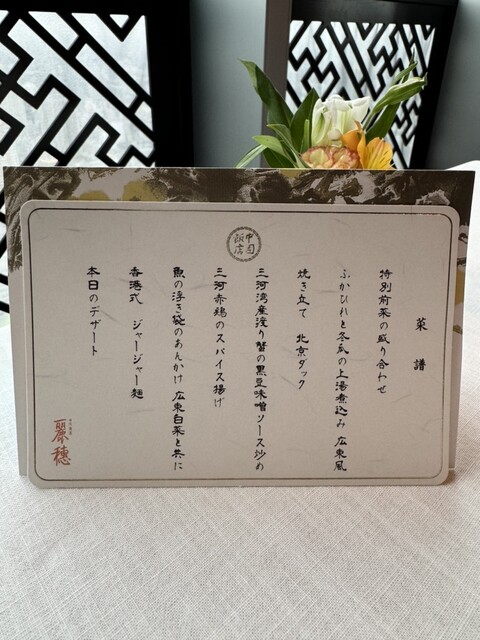 菜譜
特別前菜の盛り合わせ
ふかひれと冬瓜の上湯煮込み 広東風
焼き立て 北京ダック
三河湾産渡り蟹の黒豆味噌ソース炒め
三河赤鶏のスパイス揚げ
魚の浮き袋のあんかけ 広東白菜と共に
香港式 ジャージャー麺
本日のデザート
中国飯店
麗穂